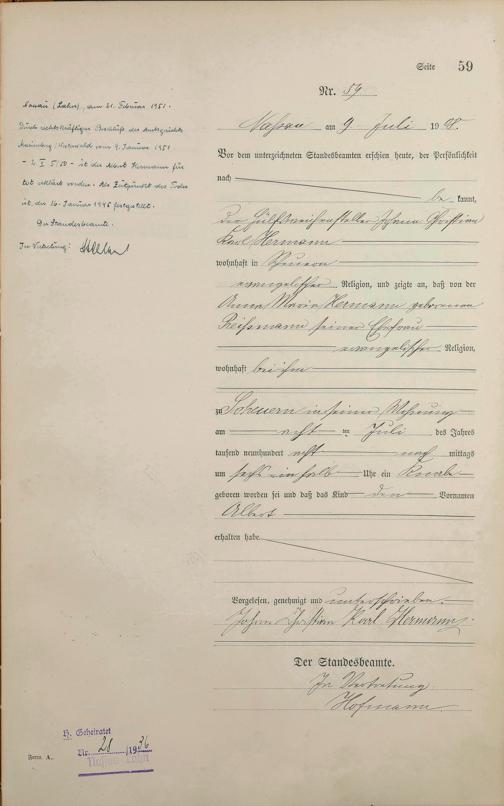 Seite 59
Nr. 59
Nassau am 9 Juli 1908.
Vor dem unterzeichneten Standesbeamten erschien heute, der Persönlichkeit
nach
be kannt,
der Hilfsweichensteller Johann Christian
Karl Hermann
wohnhaft in Scheuern
evangelischer Religion, und zeigte an, daß von der
Anna Maria Hermann geborenen
seiner Ehefrau
evangelischer Religion,
wohnhaft bei ihm
zu Scheuern in seiner Wohnung
am acht ten Juli des Jahres
tausend neunhundert acht nach mittags
um sechs einhalb Uhr ein Knabe
geboren worden sei und daß das Kind den Vornamen
Albert
erhalten habe.
Vorgelesen, genehmigt und unterschrieben.
Johann Christian Karl Hermann.
Der Standesbeamte.
In Vertretung
Hofmann
Nassau (Lahn), den 21. Februar 1951.
Durch rechtskräftigen Beschluß des Amtsgerichts
vom 9. Januar 1951
ist der Albert Hermann für
tot erklärt worden. Als Zeitpunkt des Todes
ist der 16. Januar 1945 festgestellt.
Der Standesbeamte.
In Vertretung:
H. Geheiratet
Nr. 28/1936
Nassau-Lahn
Form. A.